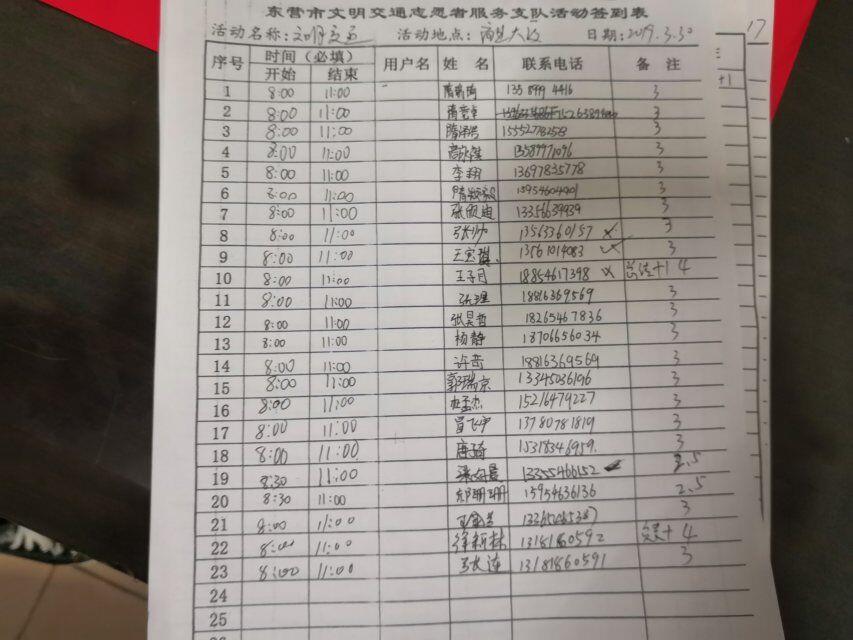 东营市文明交通志愿者服务支队活动签到表
活动名称:文明交通 活动地点: 日期:2019.3.30
序号 时间(必填) 用户名 姓名 联系电话 备注
开始 结束
1 8:00 11:00 3
2 8:00 11:00 3
3 8:00 11:00 15552778258 3
4 8:00 11:00 13589971096 3
5 8:00 11:00 李翔 13697835778 3
6 8:00 11:00 15954604901 3
7 8:00 11:00 13356639939 3
8 8:00 11:00 13563360157 × 3
9 8:00 11:00 13561014083 3
10 8:00 11:00 王子月 18854617398 × +1 4
11 8:00 11:00 18816369569 3
12 8:00 11:00 张昊哲 18265467836 3
13 8:00 11:00 杨静 13706656034 3
14 8:00 11:00 18816369569 3
15 8:00 11:00 郭瑞京 13345036196 3
16 8:00 11:00 杜孟杰 15216479227 3
17 8:00 11:00 13780781819 3
18 8:00 11:00 唐琦 15318346959 3
19 8:30 11:00 13355466152 2.5
20 8:30 11:00 郑珊珊 15954636136 2.5
21 8:00 11:00 3
22 8:00 11:00 徐新林 13181860592 + 4
23 8:00 11:00 张莲 13181860591 3
24
25
17
+1